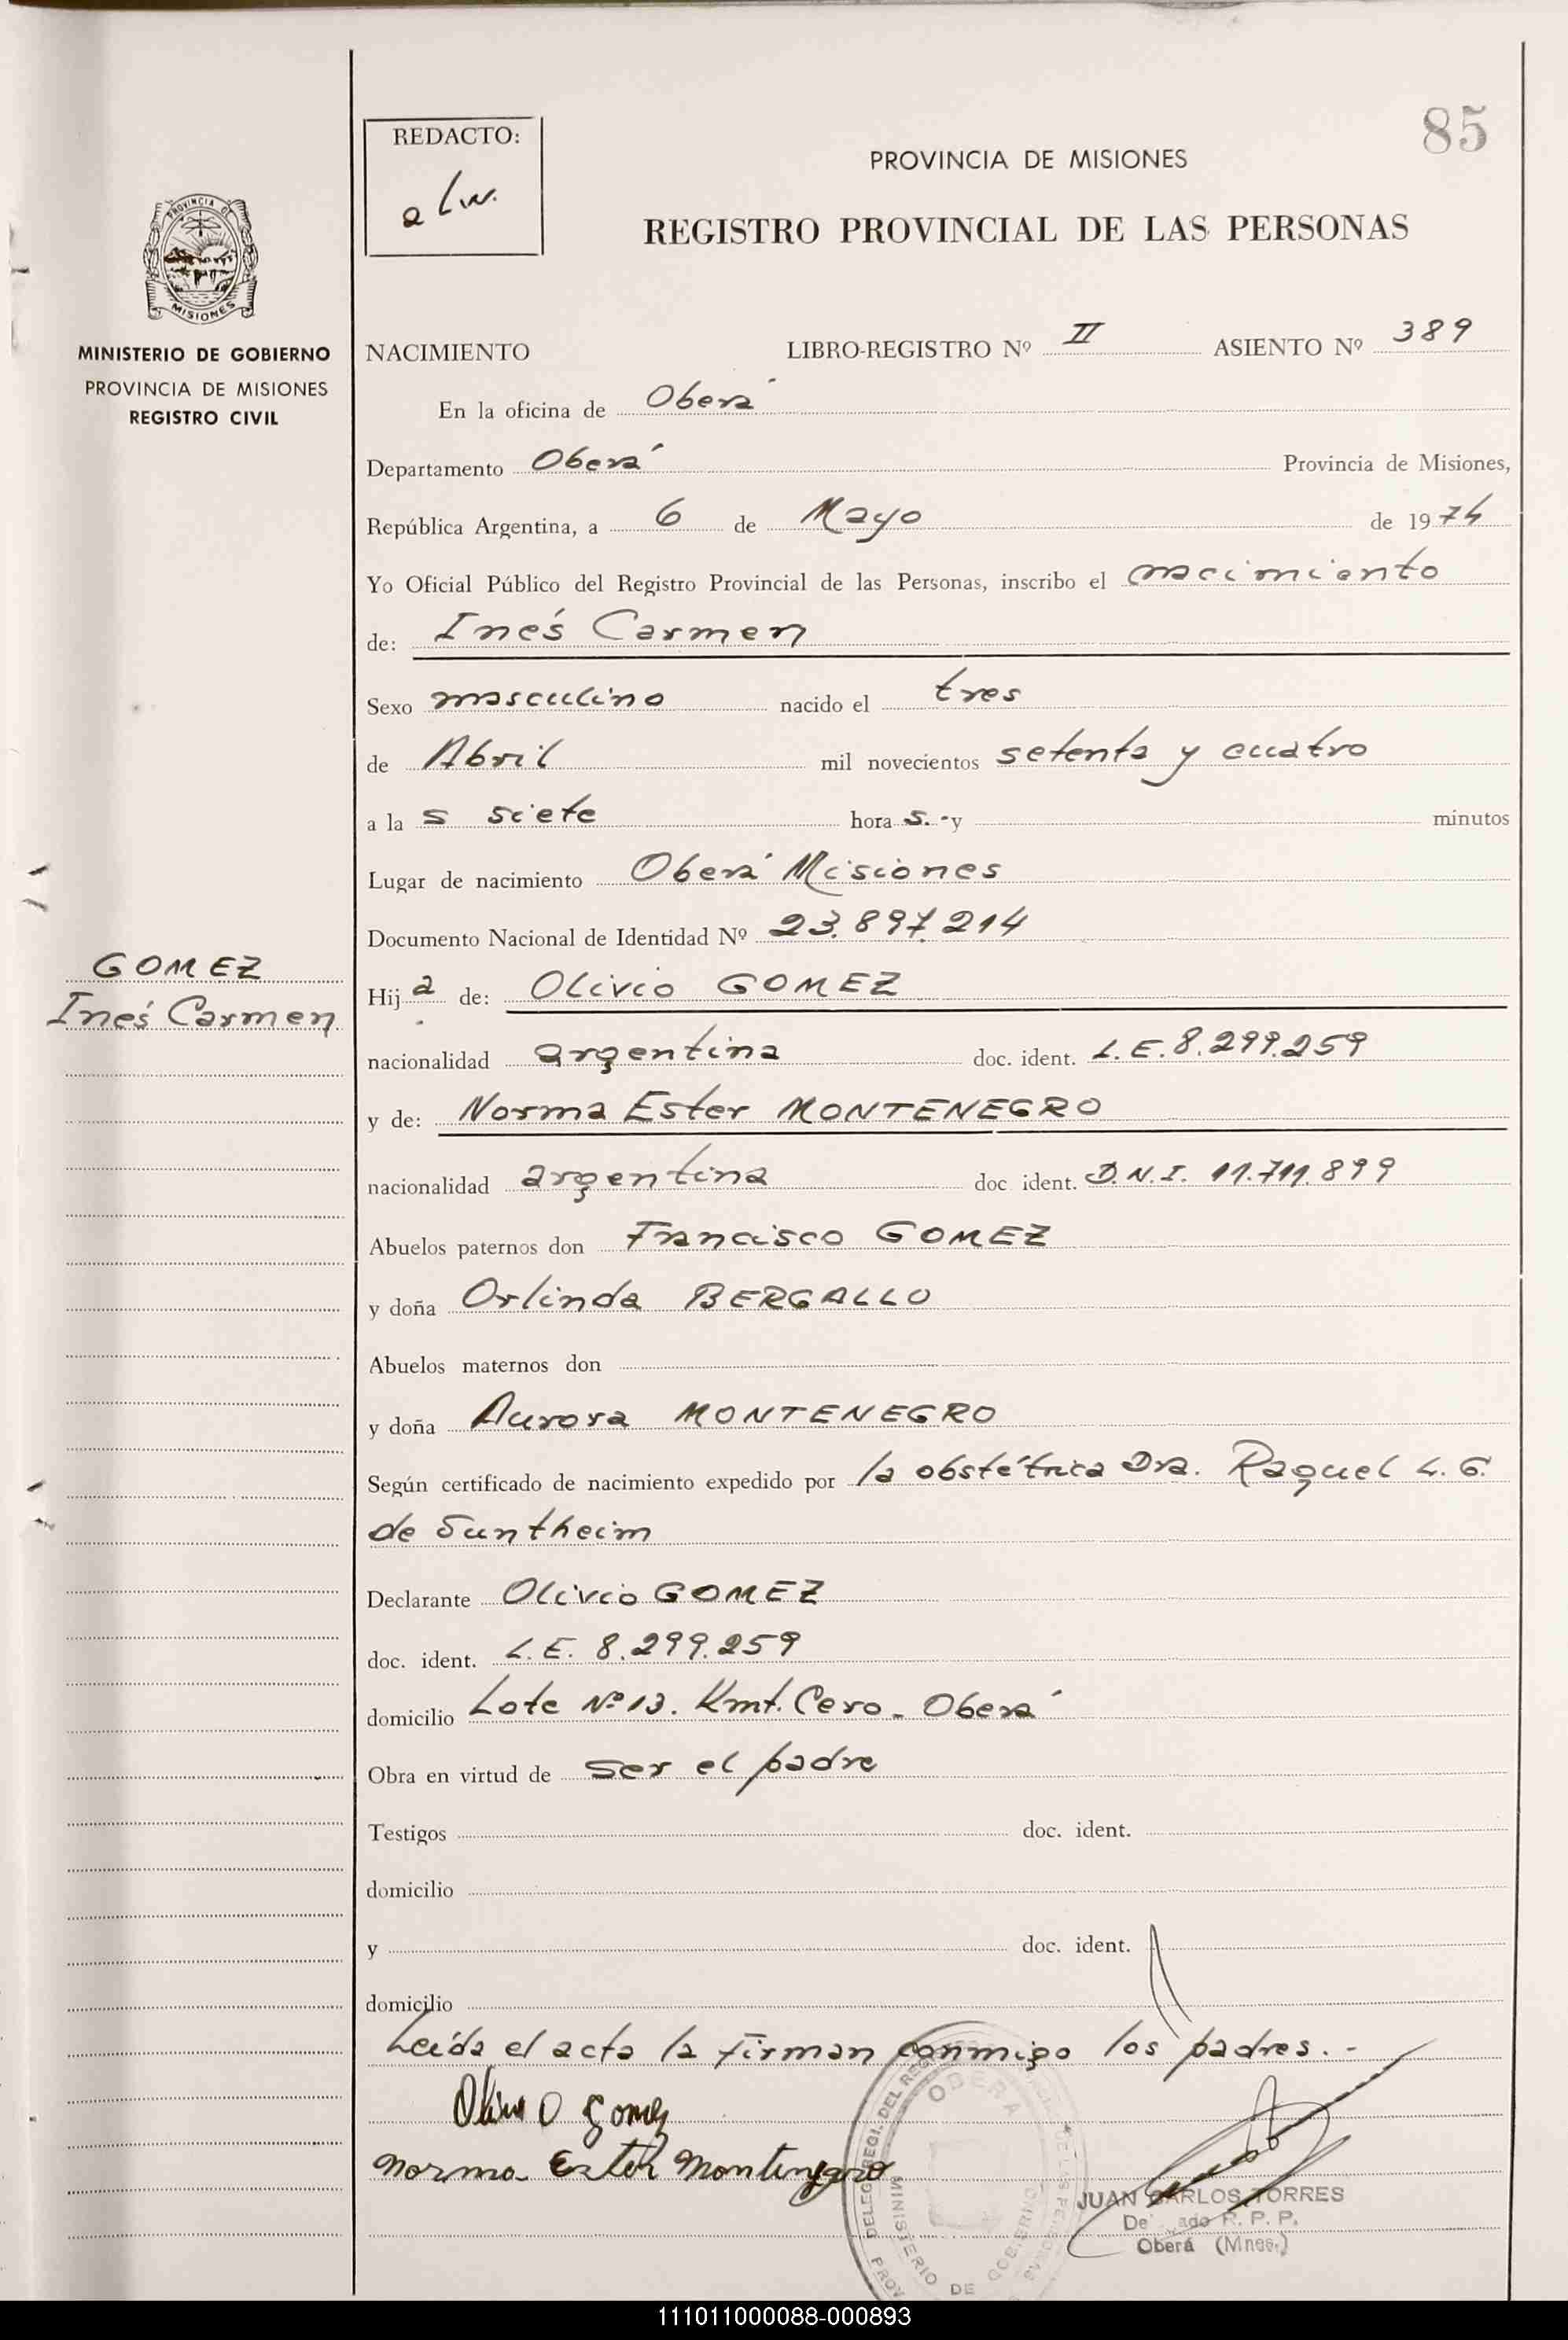 85
REDACTO:
PROVINCIA DE MISIONES
REGISTRO PROVINCIAL DE LAS PERSONAS
PROVINCIA DE
MISIONES
MINISTERIO DE GOBIERNO
PROVINCIA DE MISIONES
REGISTRO CIVIL
NACIMIENTO LIBRO-REGISTRO Nº II ASIENTO Nº 389
En la oficina de Oberá
Departamento Oberá Provincia de Misiones,
República Argentina, a 6 de Mayo de 1974
Yo Oficial Público del Registro Provincial de las Personas, inscribo el nacimiento
de: Inés Carmen
Sexo masculino nacido el tres
de Abril mil novecientos setenta y cuatro
a la s siete hora s.-y minutos
Lugar de nacimiento Oberá Misiones
Documento Nacional de Identidad Nº 23.897.214
GOMEZ
Inés Carmen
Hij a de: Olivio GOMEZ
nacionalidad argentina doc. ident. L.E.8.299.259
y de: Norma Ester MONTENEGRO
nacionalidad argentina doc ident. D.N.I. 11.711.899
Abuelos paternos don Francisco GOMEZ
y doña Orlinda BERGALLO
Abuelos maternos don
y doña Aurora MONTENEGRO
Según certificado de nacimiento expedido por la obstétrica Dra. Raquel L. G.
de Suntheim
Declarante Olivio GOMEZ
doc. ident. L.E. 8.299.259
domicilio Lote Nº 13. Kmt. Cero - Oberá
Obra en virtud de ser el padre
Testigos doc. ident.
domicilio
y doc. ident.
domicilio
Leída el acta la firman conmigo los padres.-
Olivio Gomes
Norma Ester Montenegro
DELEG. REGI. DEL REG
OBERA
DE LAS PERSONAS
MINISTERIO DE GOBIERNO
PROV
JUAN CARLOS TORRES
R. P. P.
Oberá (Mnes.)
111011000088-000893